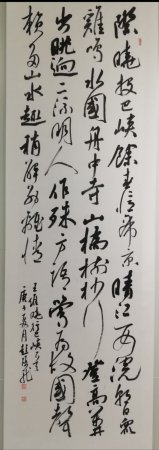 際曉投巴峽餘春憶帝京晴江一女浣朝日眾
雞鳴水國舟中市山橋樹杪行登高萬井
出眺迥二流明人作殊方語鶯為故國聲
賴多山水趣稍解別離情
王維曉行巴峽
庚子月